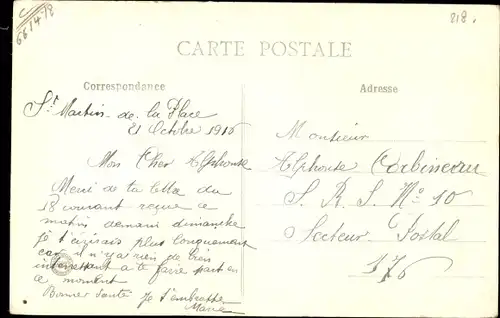 661478
818.
CARTE POSTALE
Correspondance
St Martin de la Place
21 Octobre 1916
Mon Cher Alphonse
Merci de ta lettre du
18 courant reçue ce
matin demain dimanche
je t'écrirais plus longuement
car il n'y a rien de bien
intéressant a te faire part en
ce moment
Bonne Santé Je t'embrasse
Marie
Adresse
Monsieur
Alphonse Corbineau
S. R. S. No 10
Secteur Postal
176